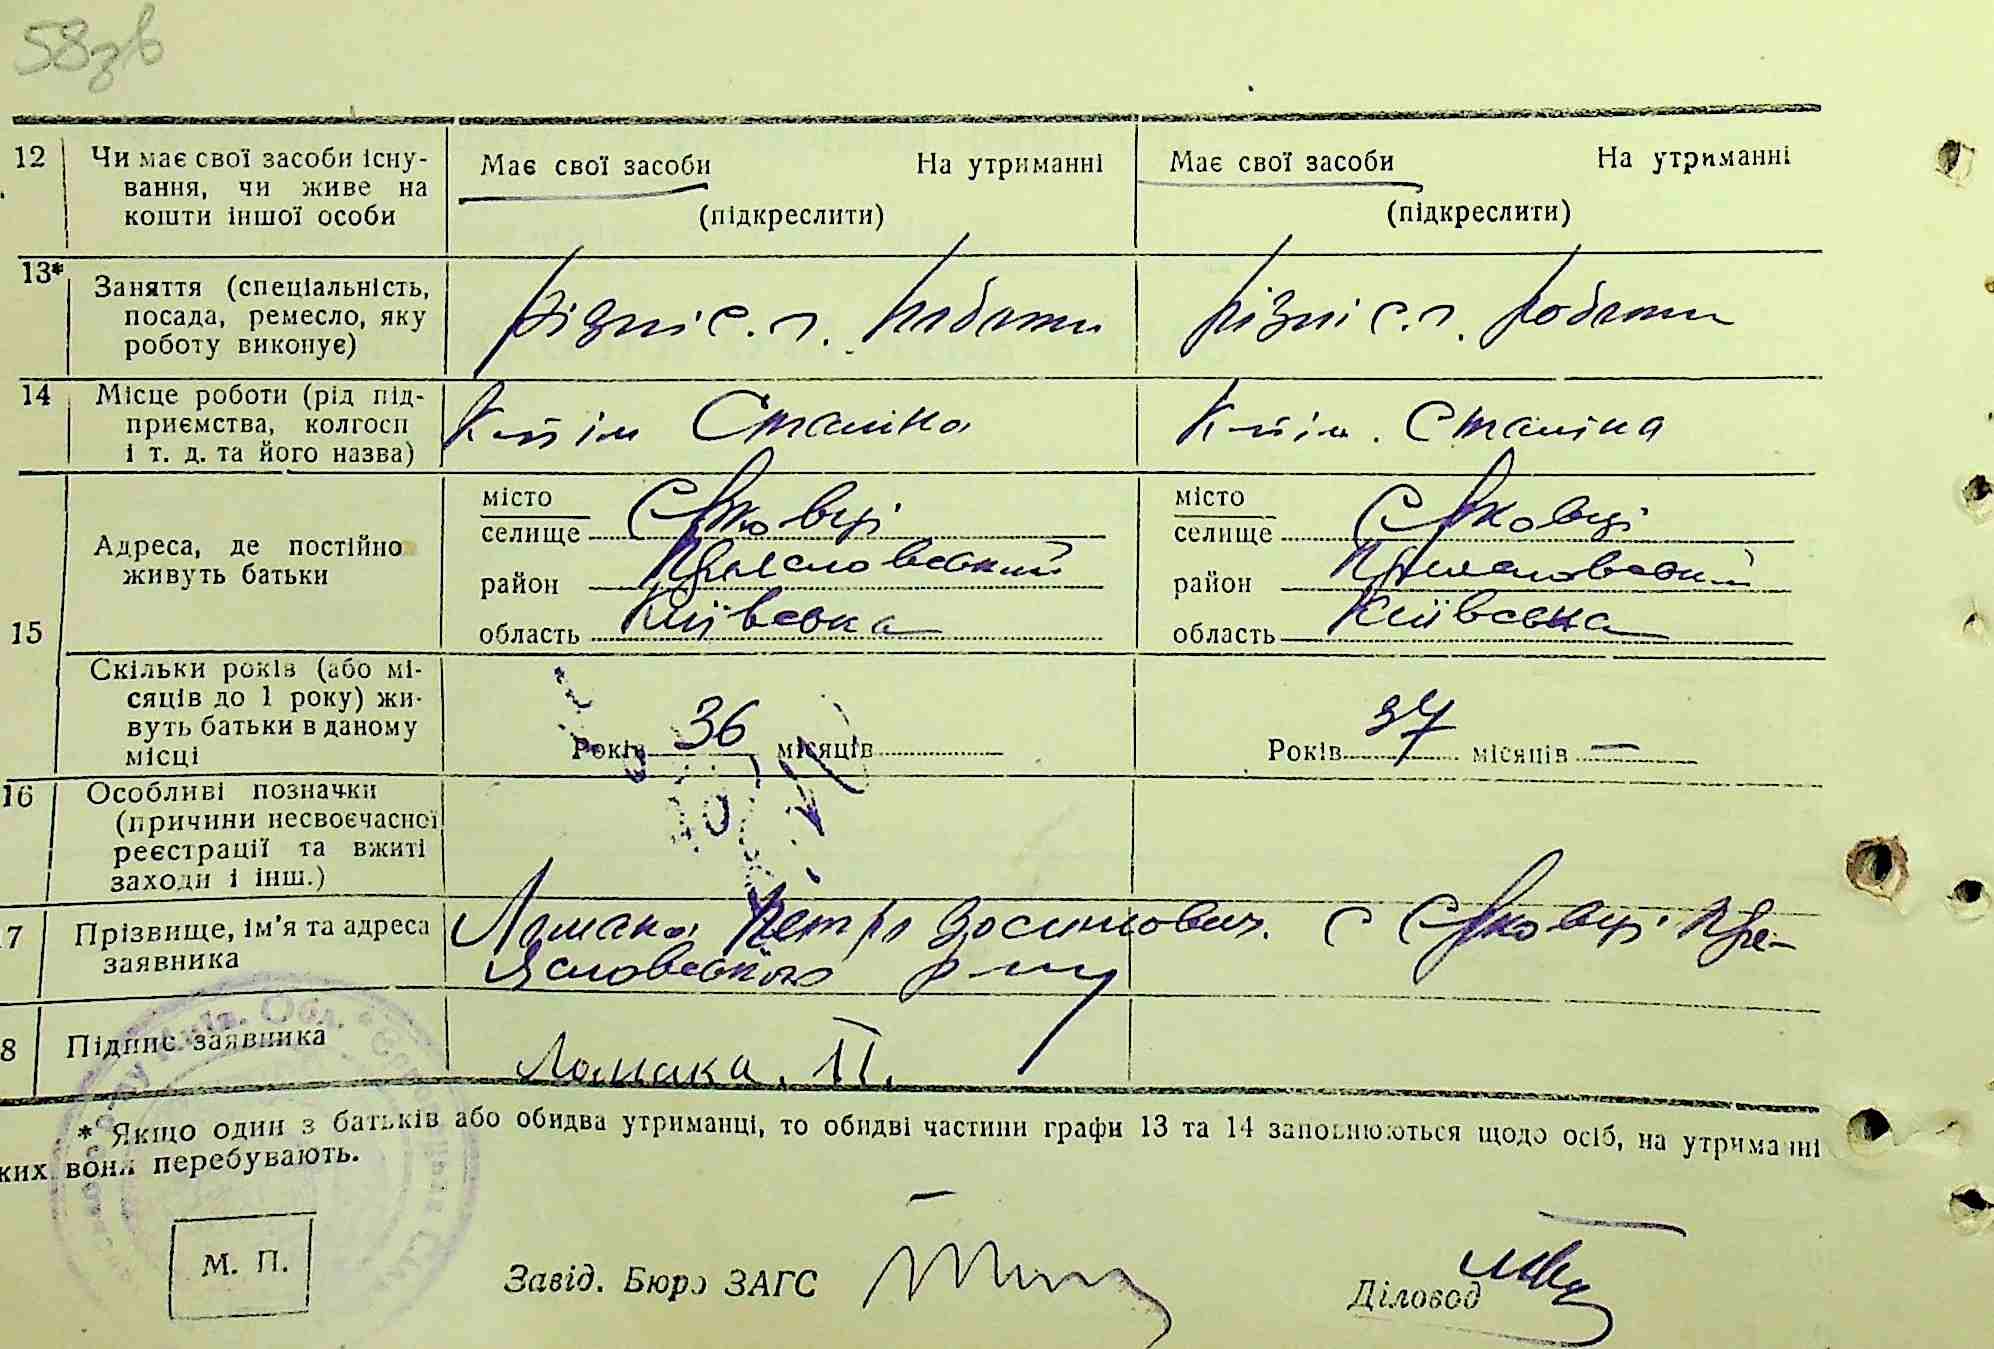 58зв
12 Чи має свої засоби існу-
вання, чи живе на
кошти іншої особи
Має свої засоби На утриманні
(підкреслити)
Має свої засоби На утриманні
(підкреслити)
13* Заняття (спеціальність,
посада, ремесло, яку
роботу виконує)
різні с. г. роботи
різні с. г. роботи
14 Місце роботи (рід під-
приємства, колгосп
і т. д. та його назва)
Сталіна
Сталіна
15
Адреса, де постійно
живуть батьки
місто
селище Єрковці
район Переяславський
область Київська
місто
селище Єрковці
район Переяславський
область Київська
Скільки років (або мі-
сяців до 1 року) жи-
вуть батьки в даному
місці
Років 36 місяців
Років 37 місяців —
16 Особливі позначки
(причини несвоєчасної
реєстрації та вжиті
заходи і інш.)
17 Прізвище, ім'я та адреса
заявника
Ломака Петро Зосимович. с Єрковці Пере-
яславського р-ну
8 Підпис заявника
Ломака. П.
* Якщо один з батьків або обидва утриманці, то обидві частини графи 13 та 14 заповнюються щодо осіб, на утриманні
ких вони перебувають.
М. П.
Завід. Бюро ЗАГС
Діловод